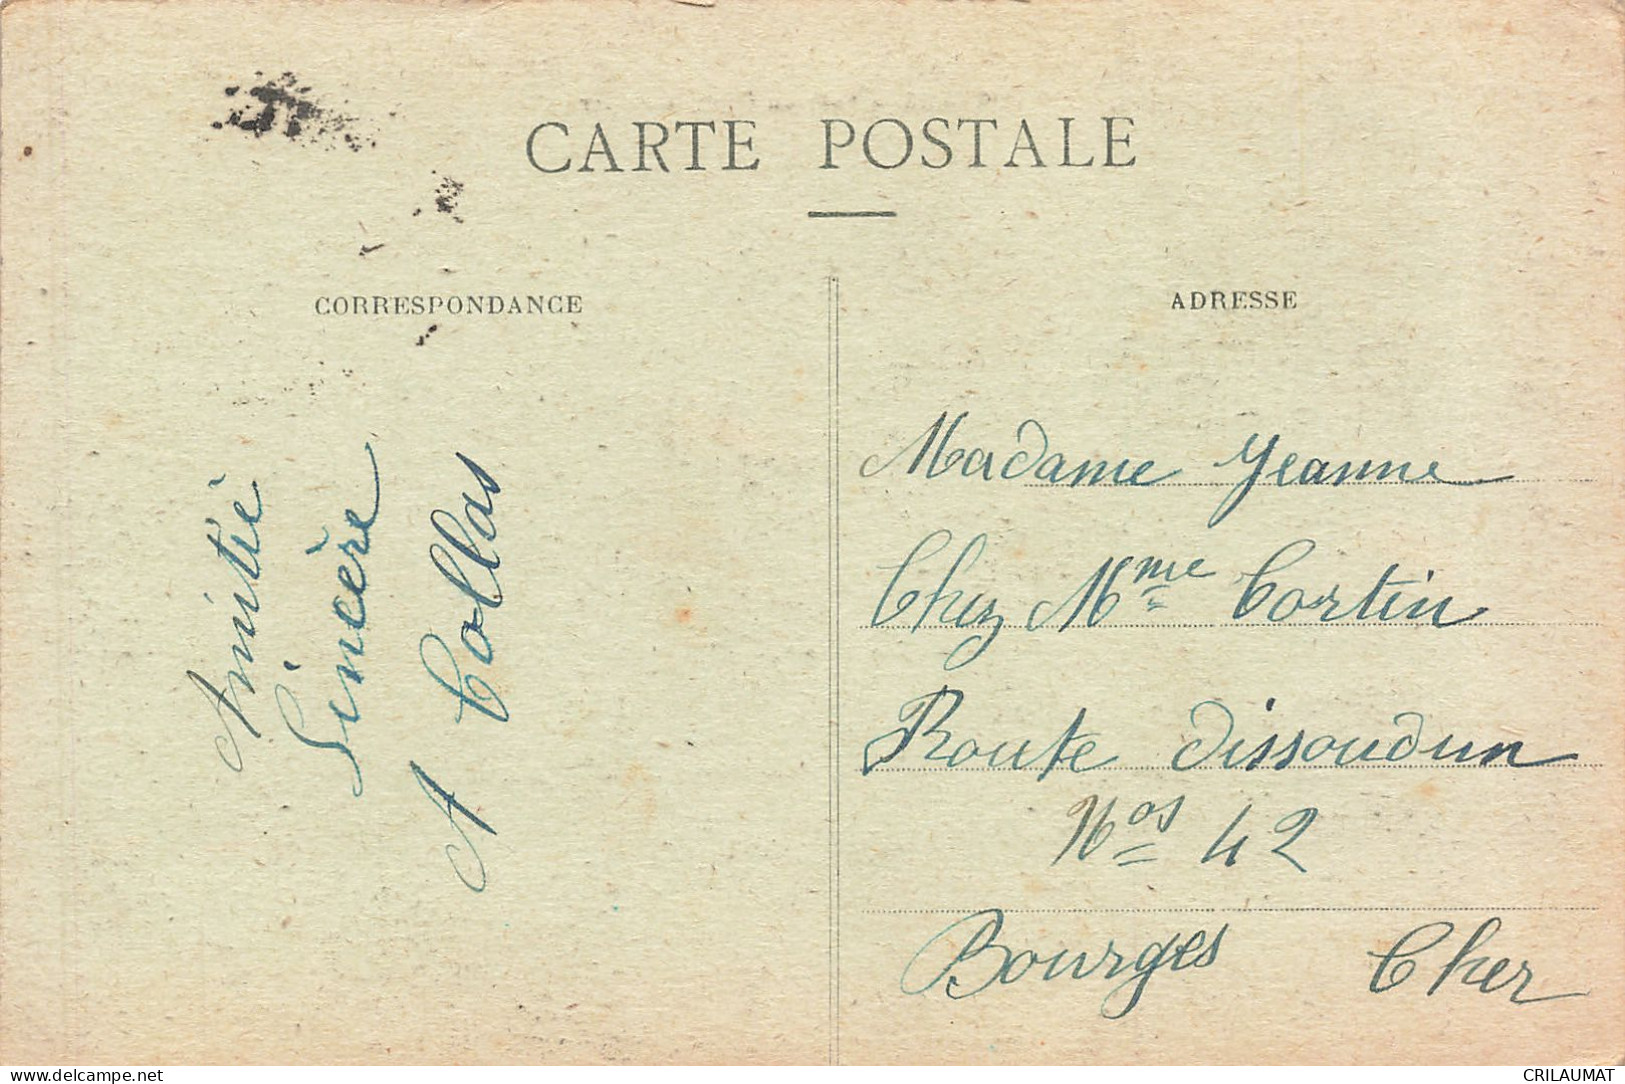 CARTE POSTALE
CORRESPONDANCE
ADRESSE
Amitié
Sincère
A Collas
Madame Jeanne
Chez Mme Cortin
Route dissoudun
Nos 42
Bourges Cher
www.delcampe.net
CRILAUMAT